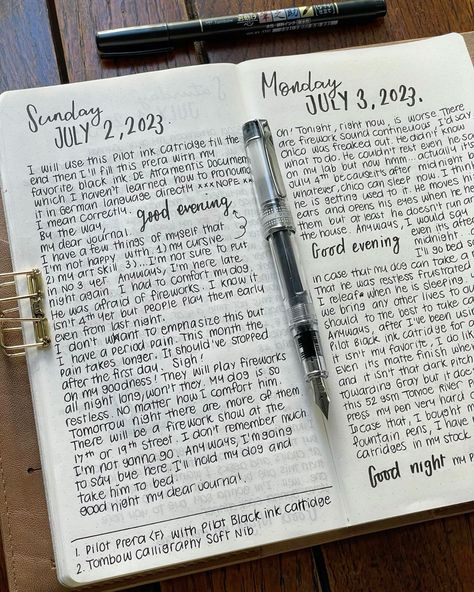 Sunday
JULY 2, 2023.
I will use this Pilot ink catridge till the
end then I'll fill this prera with my
favorite black ink: DE Atraments Document
which I haven't learned how to pronounce
it in German language directly xxxNOPE xx
I mean correctly. Good evening
By the way,
my dear journal.
I have a few things of myself that
I'm not happy with. 1) my cursive
2) my art skill 3)... I'm not sure to put
in No 3 yet. Anyways, I'm here late
night again. I had to comfort my dog.
He was afraid of fireworks. I know it
isn't 4th yet but people play them early
even from last night.
I don't want to emphasize this but
I have a period pain. This month the
pain takes longer. It should've stopped
after the first day. Sigh!
Oh my goodness! They will play fireworks
all night long, won't they. My dog is so
restless. No matter how I comfort him.
Tomorrow night there are more of them
There will be a firework show at the
17th or 19th street. I don't remember much
I'm not gonna go. Anyways, I'm going
to say bye here. I'll hold my dog and
take him to bed.
good night my dear journal.
1. Pilot Prera <F> with Pilot Black ink catridge
2. Tombow Calligraphy Soft Nib
Monday
JULY 3, 2023.
Oh! Tonight, right now, is worse. There
are firework sound continuously, I'd say
Chico was freaked out. He didn't know
what to do. He couldn't rest even he sa
on my lab but now hmm... actually it's
July 4th because it's after midnight n
whatever, Chico can sleep now. I think h
he is getting used to it. He moves hi
ears and opens his eyes when he h
them but at least he doesn't run ar
the house. Anyways, I would say
Good evening even it's
midnight.
I'll go bed
In case that my dog can take a n
that he was restless frustrated
I relief when he is sleeping.
we bring any other lives to ou
should to the best to take ca
Anyways, after I've been usin
Pilot Black ink Catridge for
it isn't my favorite, I do lik
Even its matte finish when
and it isn't that dark inste
Towarding Gray but it does
this 52 gsm Tomoe River
press my pen very hard o
In case that, I bought
fountain pens, I have
catridges in my stock
Good night my